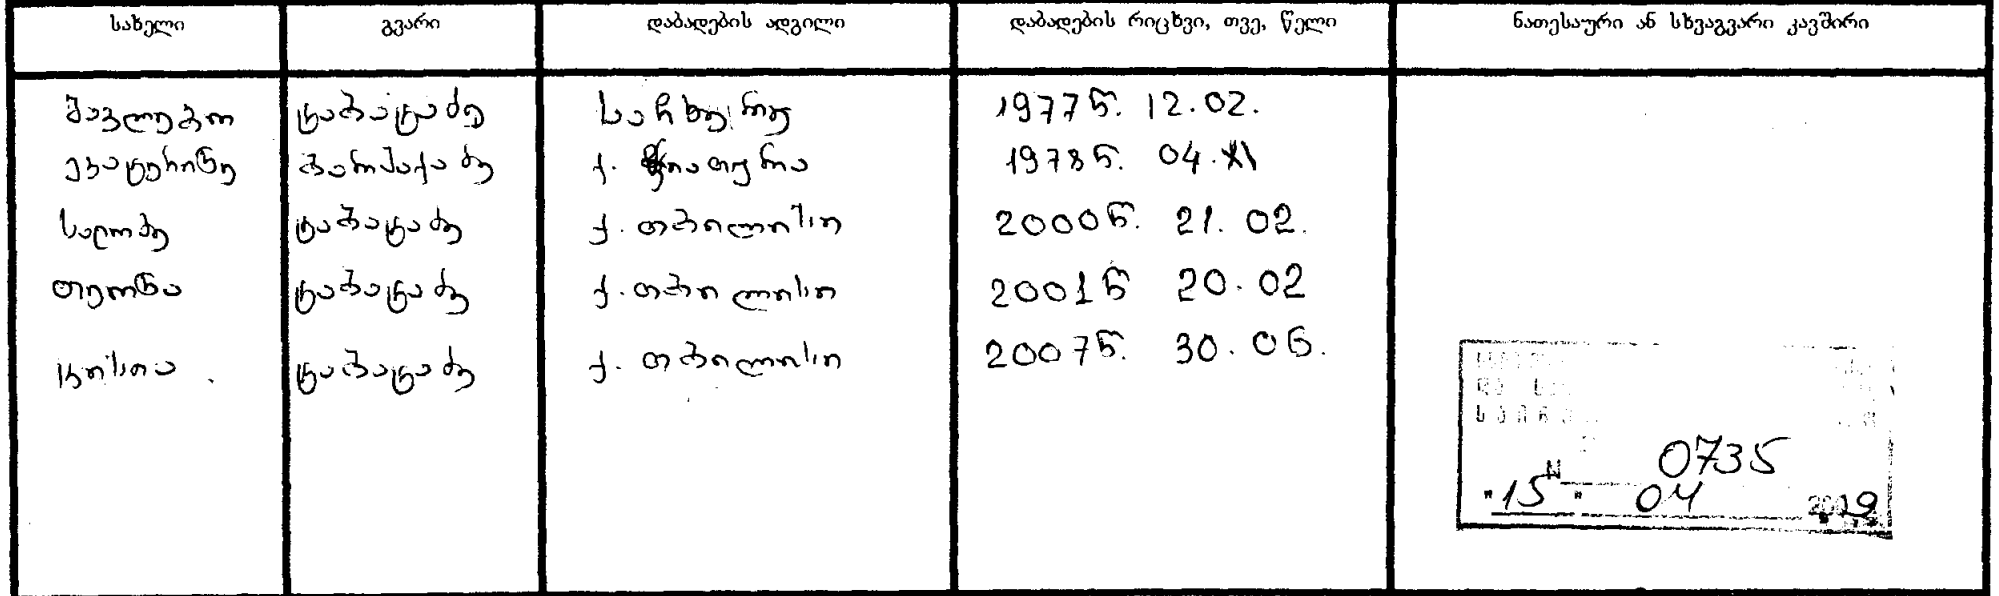 სახელი გვარი დაბადების ადგილი დაბადების რიცხვი, თვე, წელი ნათესაური ან სხვაგვარი კავშირი
შავლეგო ტაბატაძე საჩხერე 1977წ. 12.02.
ეკატერინე ბარბაქაძე ქ. ჭიათურა 1978წ. 04.XI
სალომე ტაბატაძე ქ. თბილისი 2000წ. 21. 02.
თეონა ტაბატაძე ქ. თბილისი 2001წ 20. 02
ტაბატაძე ქ. თბილისი 2007წ. 30. 05.
და
N 0735
"15" 04 2009